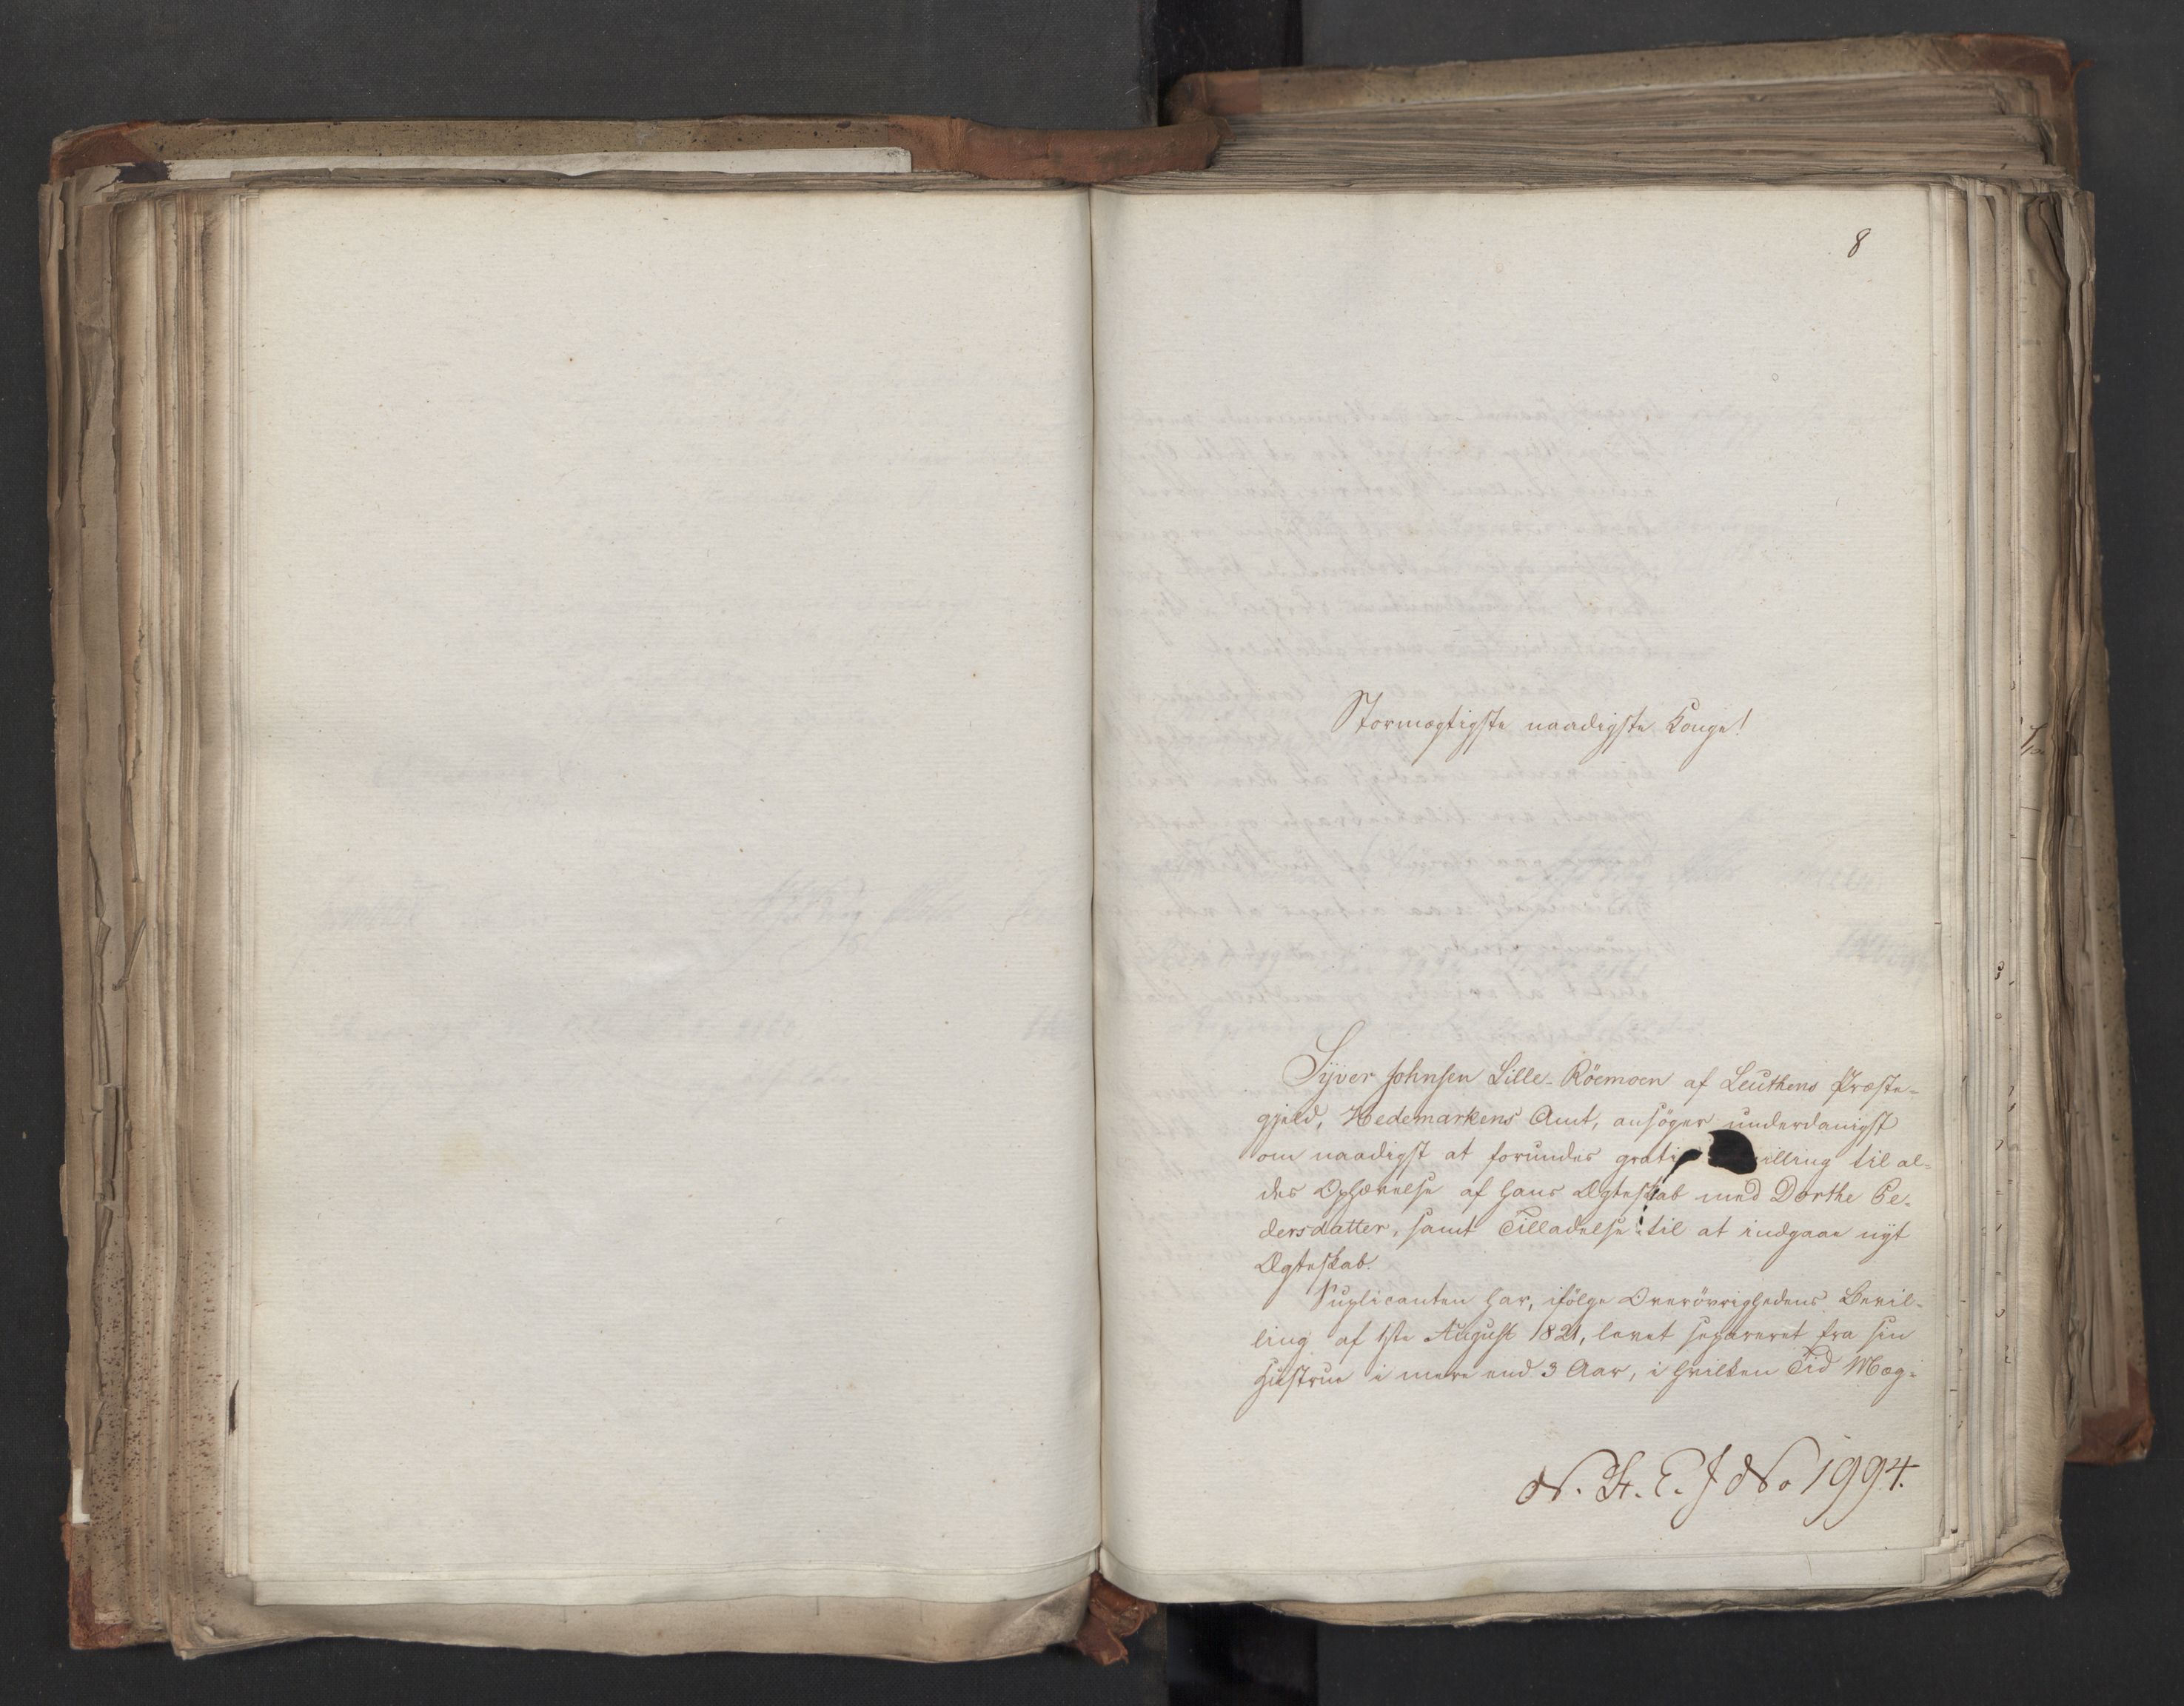 8
Stormægtigste naadigste Konge!
Syver Johnsen Lille-Röemoen af Leuthens Præste-
gjeld, Hedemarkens Amt, ansöger underdanigst
om naadigst at forundes grati illing til al-
des Ophævelse af hans Ægteskab med Dorthe Pe-
dersdatter, samt Tilladelse til at indgaae nyt
Ægteskab.
Suplicanten har, ifölge Overövrighedens Bevil-
ling af 1ste August 1821, levet separeret fra sin
Hustrue i mere end 3 Aar, i hvilken Tid Mæg-
N. H. E. J No 1994.